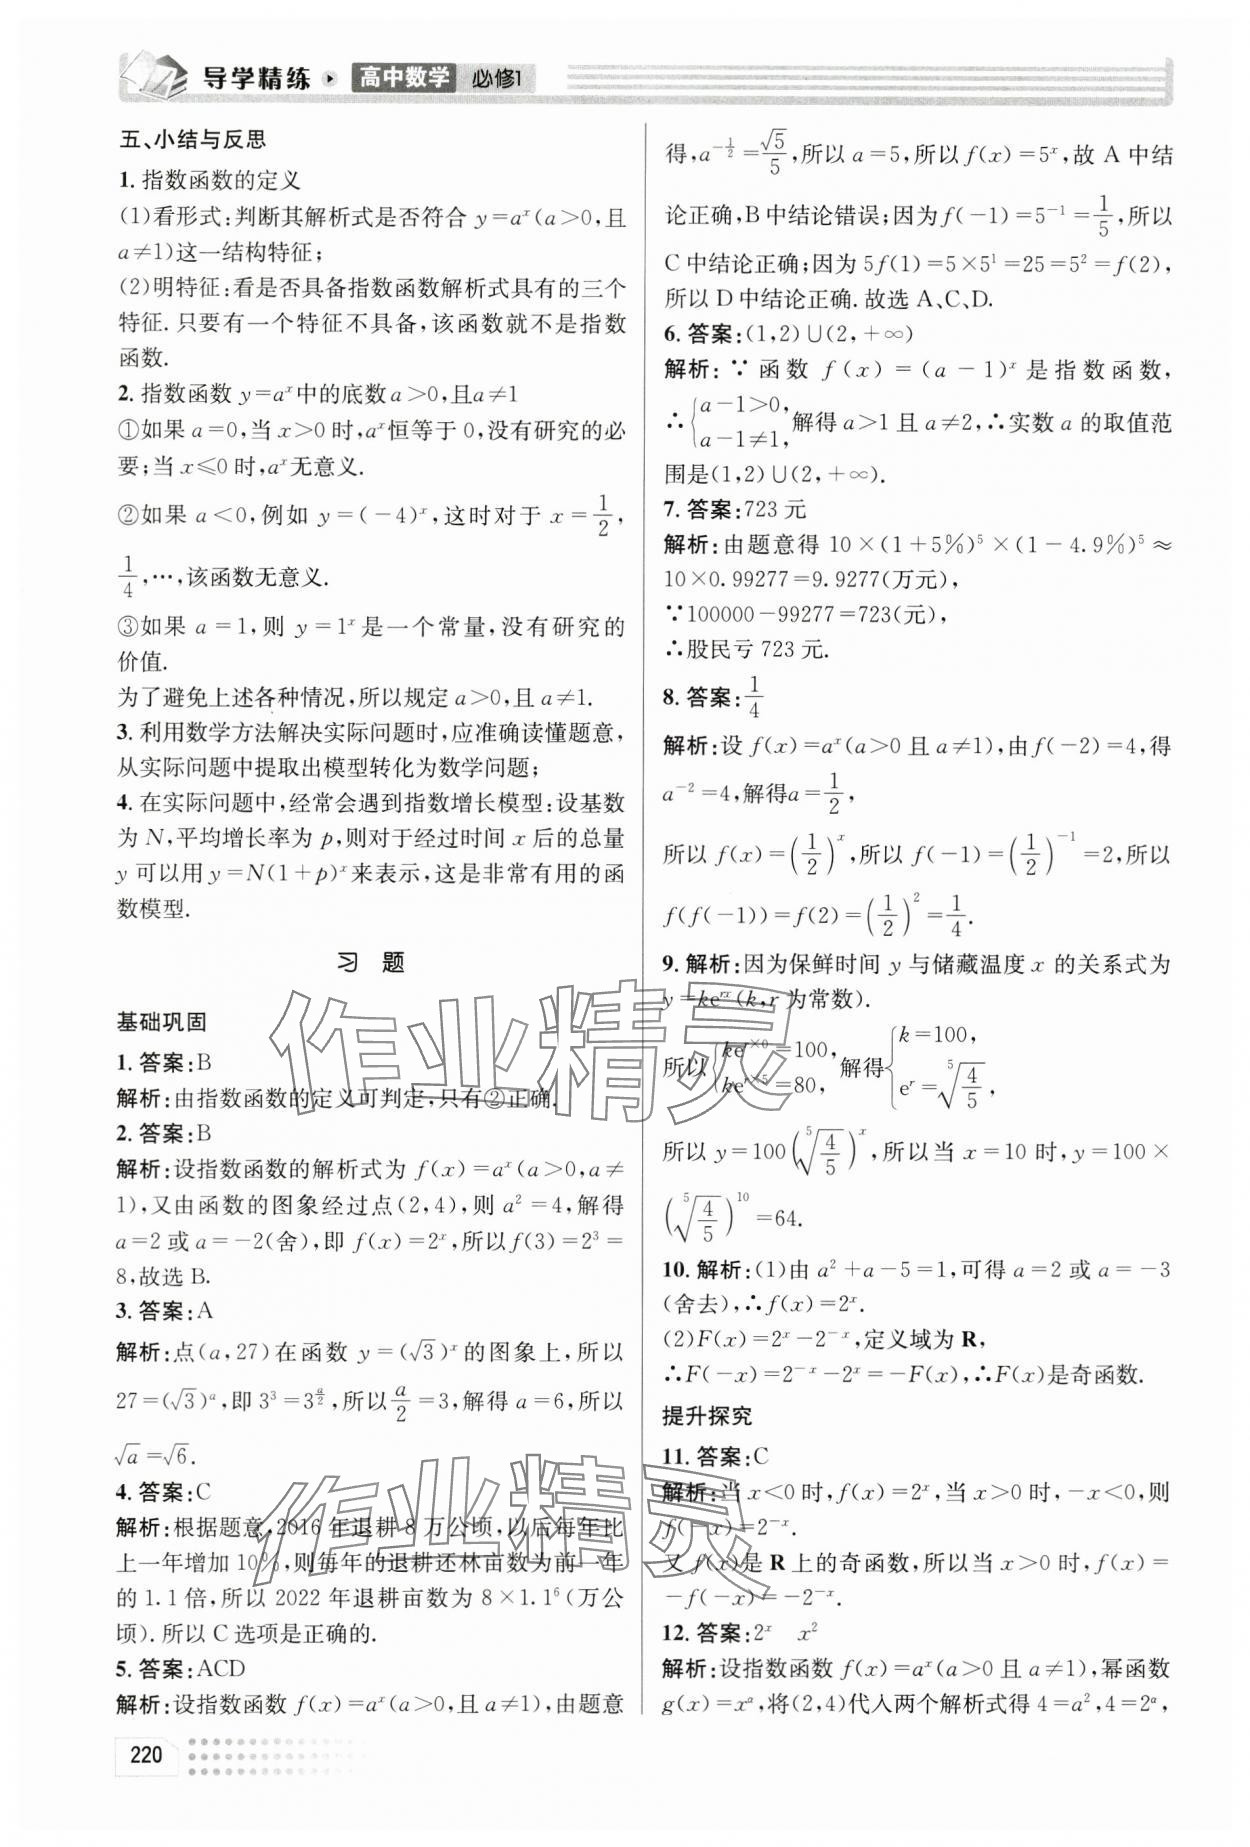 导学精练 高中数学 必修1
五、小结与反思
1. 指数函数的定义
(1)看形式:判断其解析式是否符合 y=aˣ(a>0,且
a≠1)这一结构特征;
(2)明特征:看是否具备指数函数解析式具有的三个
特征. 只要有一个特征不具备,该函数就不是指数
函数.
2. 指数函数 y=aˣ中的底数 a>0,且a≠1
①如果 a=0,当 x>0 时,aˣ恒等于 0,没有研究的必
要;当 x≤0 时,aˣ无意义.
②如果 a<0,例如 y=(-4)ˣ,这时对于 x=1/2,
1/4,…,该函数无意义.
③如果 a=1,则 y=1ˣ是一个常量,没有研究的
价值.
为了避免上述各种情况,所以规定 a>0,且 a≠1.
3. 利用数学方法解决实际问题时,应准确读懂题意,
从实际问题中提取出模型转化为数学问题;
4. 在实际问题中,经常会遇到指数增长模型:设基数
为 N,平均增长率为 p,则对于经过时间 x 后的总量
y 可以用 y=N(1+p)ˣ来表示,这是非常有用的函
数模型.
习 题
基础巩固
1. 答案:B
解析:由指数函数的定义可判定,只有②正确.
2. 答案:B
解析:设指数函数的解析式为 f(x)=aˣ(a>0,a≠
1),又由函数的图象经过点(2,4),则 a²=4,解得
a=2 或 a=-2(舍),即 f(x)=2ˣ,所以 f(3)=2³=
8,故选 B.
3. 答案:A
解析:点(a,27)在函数 y=(√3)ˣ的图象上,所以
27=(√3)ᵃ,即 3³=3^(a/2),所以a/2=3,解得 a=6,所以
√a=√6.
4. 答案:C
解析:根据题意,2016 年退耕 8 万公顷,以后每年比
上一年增加 10%,则每年的退耕还林亩数为前一年
的 1.1 倍,所以 2022 年退耕亩数为 8×1.1⁶(万公
顷).所以 C 选项是正确的.
5. 答案:ACD
解析:设指数函数 f(x)=aˣ(a>0,且 a≠1),由题意
得,a^(-1/2)=√5/5,所以 a=5,所以 f(x)=5ˣ,故 A 中结
论正确,B 中结论错误;因为 f(-1)=5⁻¹=1/5,所以
C 中结论正确;因为 5f(1)=5×5¹=25=5²=f(2),
所以 D 中结论正确. 故选 A、C、D.
6. 答案:(1,2)∪(2,+∞)
解析:∵函数 f(x)=(a-1)ˣ是指数函数,
∴{a-1>0, a-1≠1, 解得 a>1 且 a≠2,∴实数 a 的取值范
围是(1,2)∪(2,+∞).
7. 答案:723 元
解析:由题意得 10×(1+5%)⁵×(1-4.9%)⁵≈
10×0.99277=9.9277(万元),
∵100000-99277=723(元),
∴股民亏 723 元.
8. 答案:1/4
解析:设 f(x)=aˣ(a>0 且 a≠1),由 f(-2)=4,得
a⁻²=4,解得a=1/2,
所以 f(x)=(1/2)ˣ,所以 f(-1)=(1/2)⁻¹=2,所以
f(f(-1))=f(2)=(1/2)²=1/4.
9. 解析:因为保鲜时间 y 与储藏温度 x 的关系式为
y=keʳˣ(k,r 为常数).
所以{ke^(r×0)=100, ke^(r×5)=80, 解得{k=100, eʳ=⁵√(4/5),
所以 y=100(⁵√(4/5))ˣ,所以当 x=10 时,y=100×
(⁵√(4/5))¹⁰=64.
10. 解析:(1)由 a²+a-5=1,可得 a=2 或 a=-3
(舍去),∴f(x)=2ˣ.
(2)F(x)=2ˣ-2⁻ˣ,定义域为 R,
∴F(-x)=2⁻ˣ-2ˣ=-F(x),∴F(x)是奇函数.
提升探究
11. 答案:C
解析:当 x<0 时,f(x)=2ˣ,当 x>0 时,-x<0,则
f(-x)=2⁻ˣ.
又 f(x)是 R 上的奇函数,所以当 x>0 时,f(x)=
-f(-x)=-2⁻ˣ.
12. 答案:2ˣ x²
解析:设指数函数 f(x)=aˣ(a>0 且 a≠1),幂函数
g(x)=xᵅ,将(2,4)代入两个解析式得 4=a²,4=2ᵅ,
220
作业精灵
作业精灵